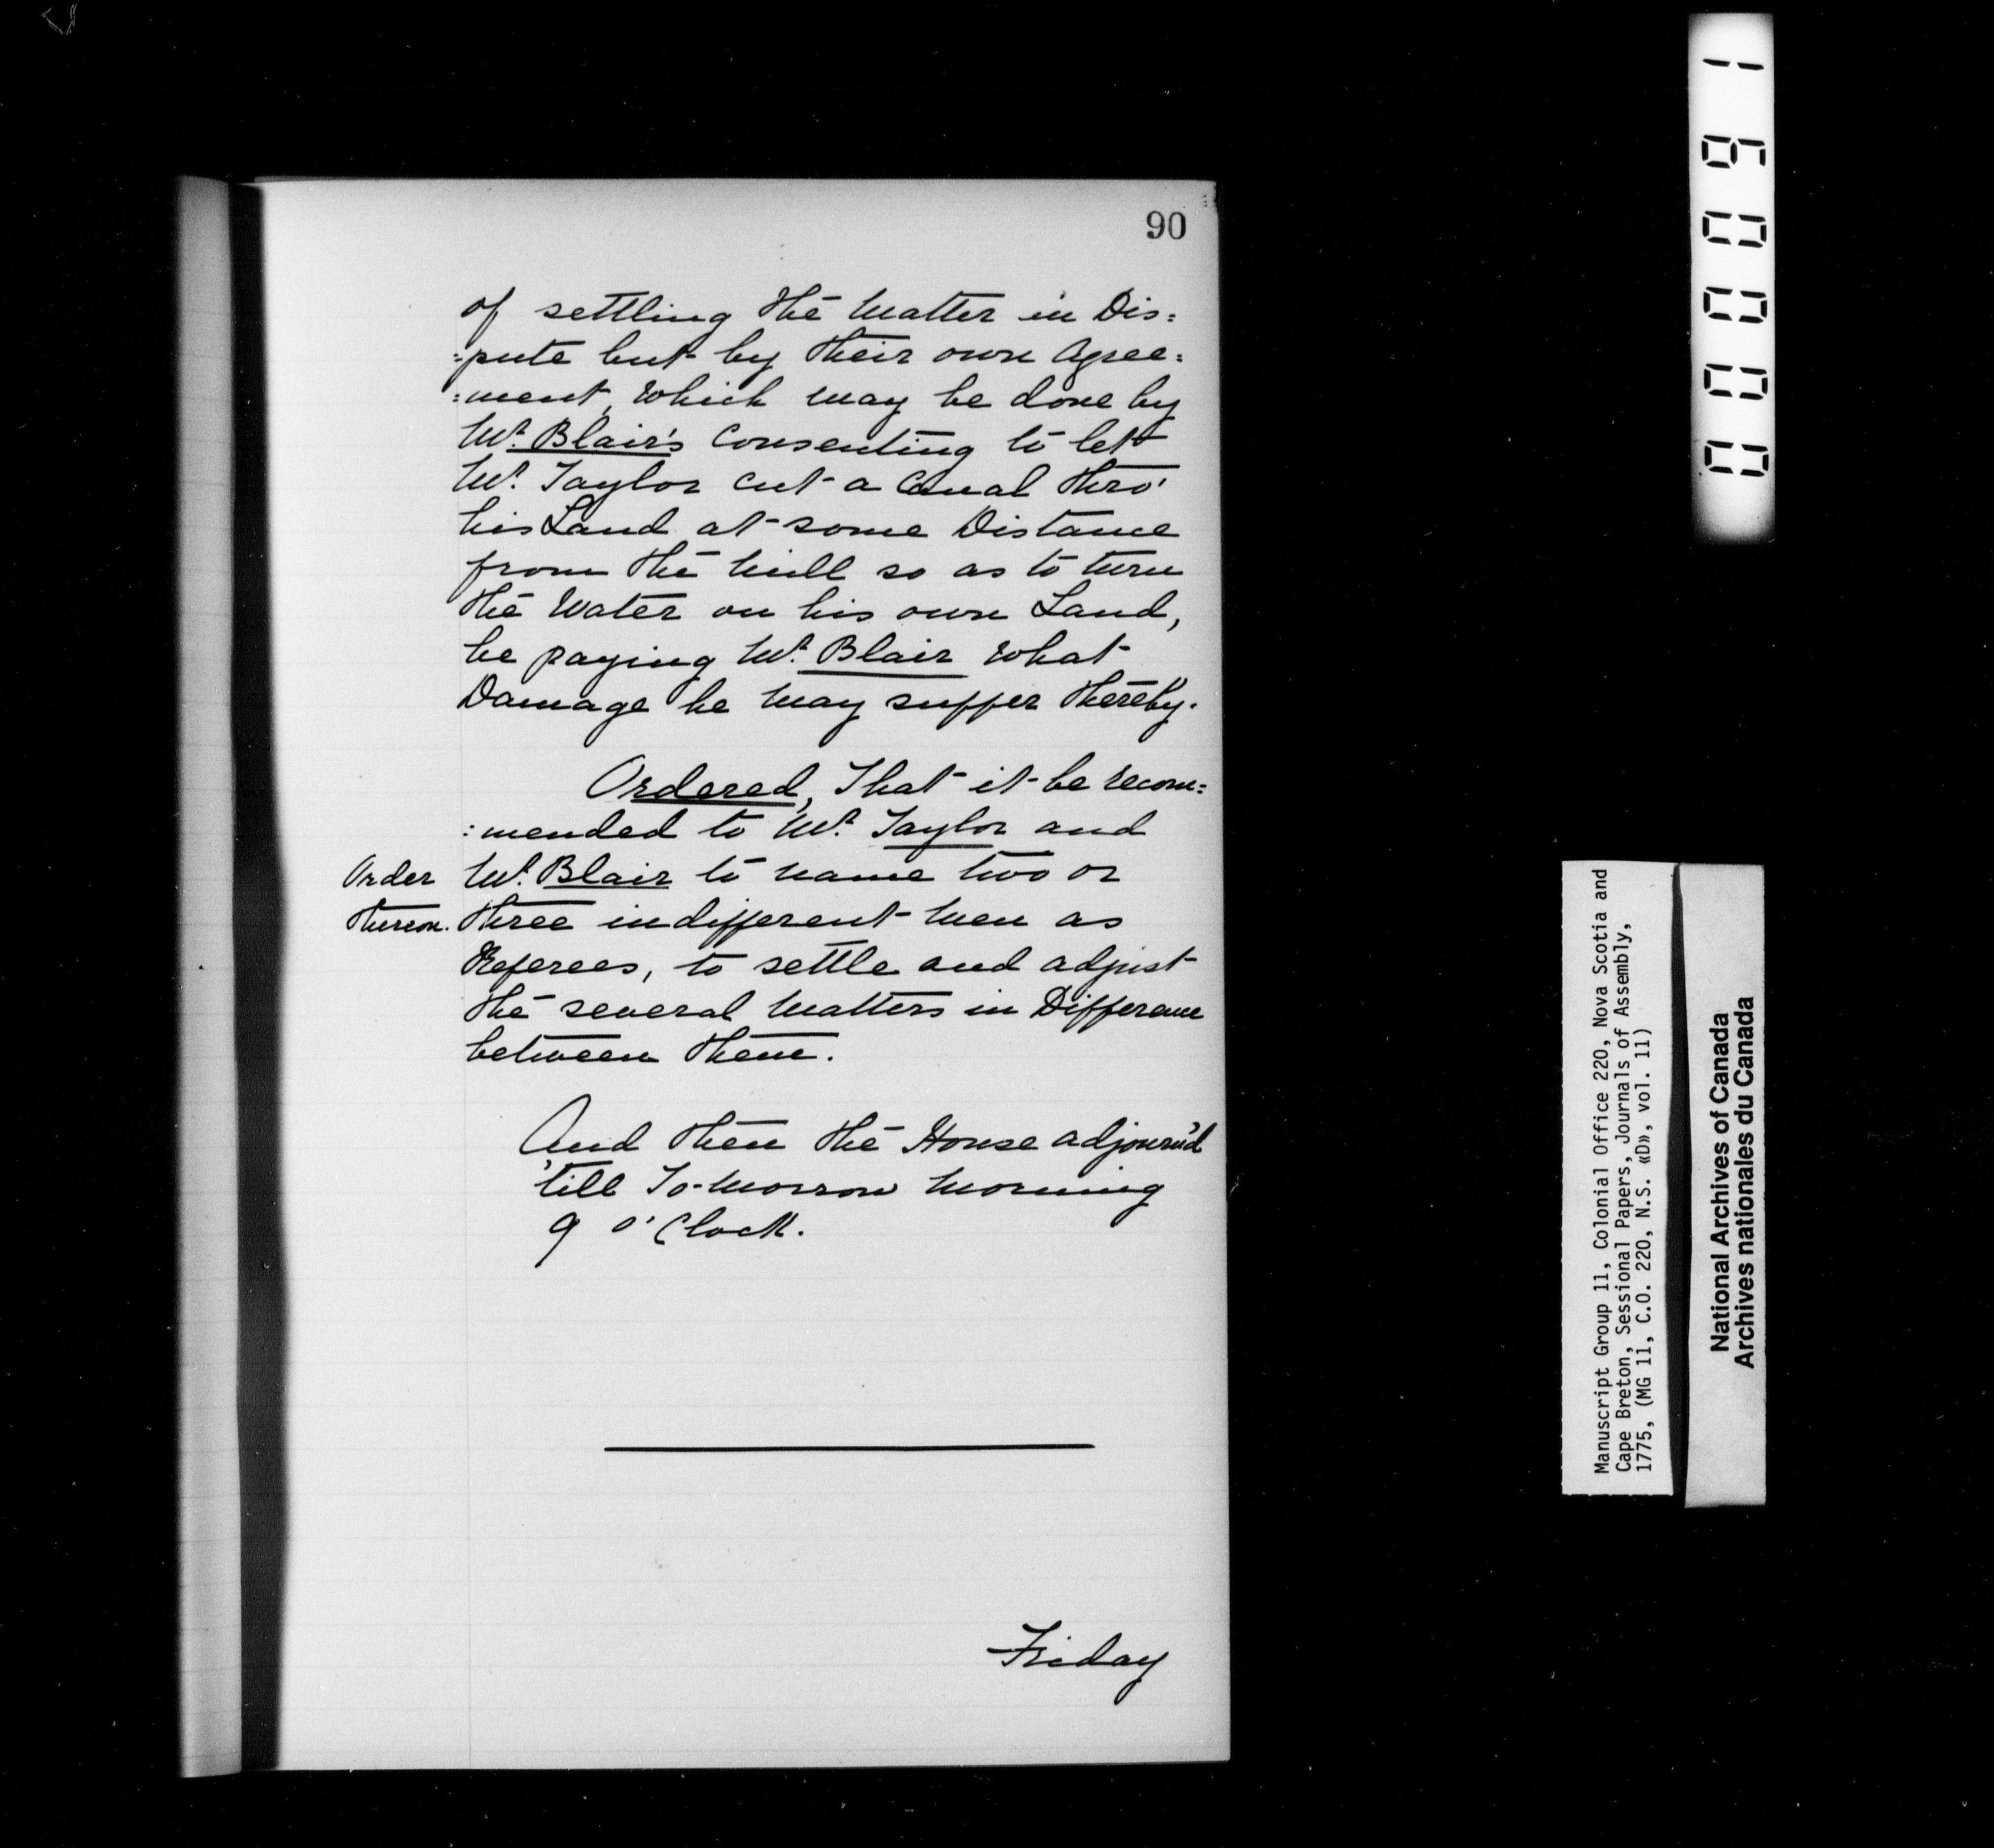 90
of settling the Matter in Dis=
=pute but by their own Agree=
=ment, which may be done by
Mr. Blair's Consenting to let
Mr. Taylor cut a Canal thro'
his Land at some Distance
from the Mill so as to turn
the Water on his own Land,
he paying Mr. Blair what
Damage he may suffer thereby.
Ordered, That it be recom=
:mended to Mr. Taylor and
Order
thereon.
Mr. Blair to name two or
three indifferent Men as
Referees, to settle and adjust
the several Matters in Difference
between them.
And then the House adjourn'd
'till To-Morrow Morning
9 o'Clock.
Friday
000091
Manuscript Group 11, Colonial Office 220, Nova Scotia and
Cape Breton, Sessional Papers, Journals of Assembly,
1775, (MG 11, C.O. 220, N.S. «D», vol. 11)
National Archives of Canada
Archives nationales du Canada